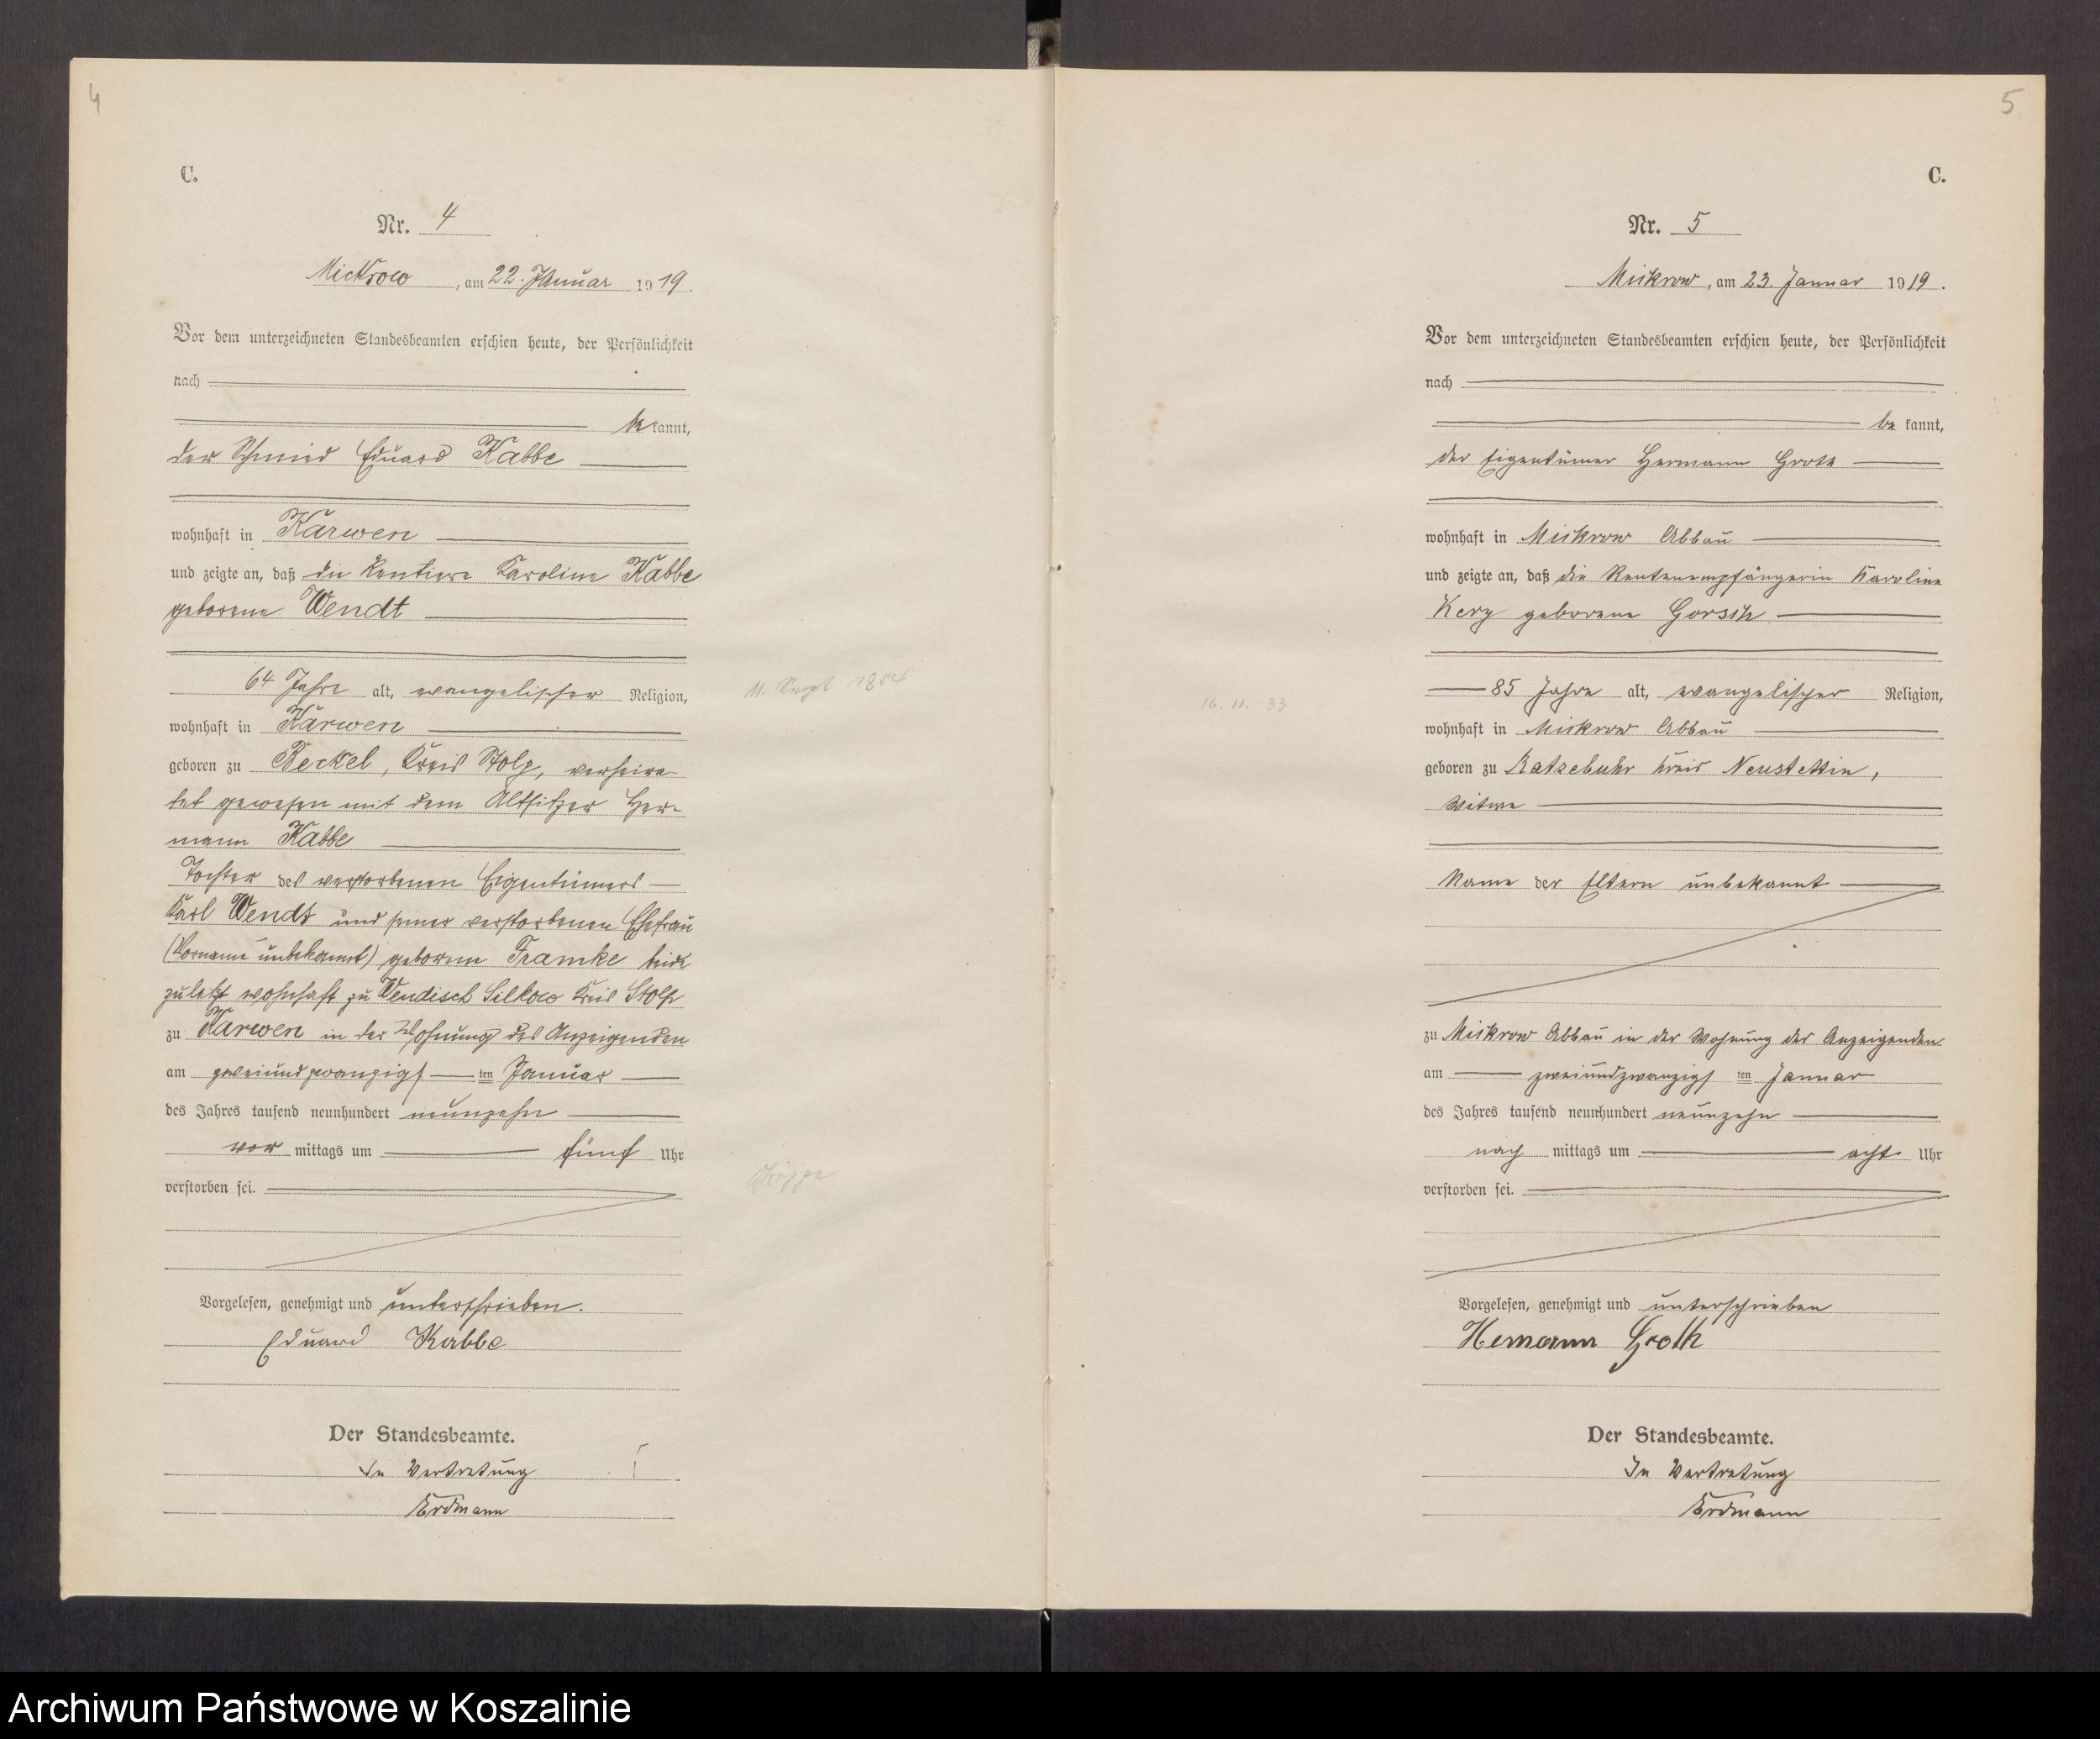 4
C.
Nr. 4
Mickrow, am 22. Januar 1919.
Vor dem unterzeichneten Standesbeamten erschien heute, der Persönlichkeit
nach
bekannt,
der Schmied Eduard Kabbe
wohnhaft in Karwen
und zeigte an, daß die Rentiere Karoline Kabbe
geborene Wendt
64 Jahre alt, evangelischer Religion,
11. Sept 1854
wohnhaft in Karwen
geboren zu Beckel, Kreis Stolp, verheira-
tet gewesen mit dem Altsitzer Her-
mann Kabbe
Tochter des verstorbenen Eigentümers
Karl Wendt und seiner verstorbenen Ehefrau
(Vorname unbekannt) geborene Framke beide
zuletzt wohnhaft zu Wendisch Silkow Kreis Stolp
zu Karwen in der Wohnung des Anzeigenden
am zweiundzwanzigsten Januar
des Jahres tausend neunhundert neunzehn
vor mittags um fünf Uhr
verstorben sei.
Grippe
Vorgelesen, genehmigt und unterschrieben.
Eduard Kabbe
Der Standesbeamte.
In Vertretung
Erdmann
5
C.
Nr. 5
Mikrow, am 23. Januar 1919.
Vor dem unterzeichneten Standesbeamten erschien heute, der Persönlichkeit
nach
bekannt,
der Eigentümer Hermann Grote
wohnhaft in Mikrow Abbau
und zeigte an, daß die Rentenempfängerin Karoline
geborene
85 Jahre alt, evangelischer Religion,
16. 11. 33
wohnhaft in Mikrow Abbau
geboren zu Ratzebuhr Kreis Neustettin,
Witwe
Name der Eltern unbekannt
zu Mikrow Abbau in der Wohnung des Anzeigenden
am zweiundzwanzigsten Januar
des Jahres tausend neunhundert neunzehn
nach mittags um acht Uhr
verstorben sei.
Vorgelesen, genehmigt und unterschrieben
Hemann Groth
Der Standesbeamte.
In Vertretung
Erdmann
Archiwum Państwowe w Koszalinie